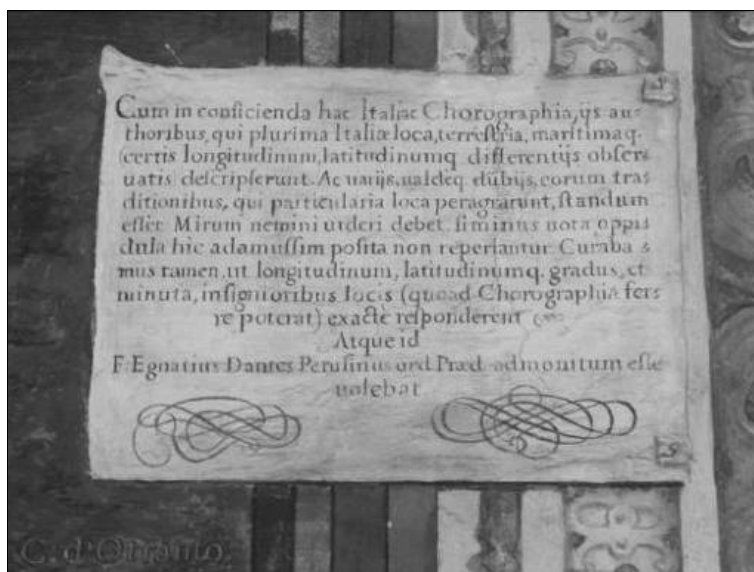 Cum in conficienda hac Italiæ Chorographia, ijs au-
thoribus, qui plurima Italiæ loca, terrestria, maritimaq.
certis longitudinum, latitudinumq differentijs obser-
uatis descripserunt. Ac uarijs, ualdeq dubijs, eorum tra-
ditionibus, qui particularia loca peragrarunt, standum
esset Mirum nemini uideri debet, si minus nota oppi-
dula hic adamussim posita non reperiantur Curaba-
mus tamen, ut longitudinum, latitudinumq. gradus, et
minuta, insignioribus locis (quoad Chorographia fer-
re poterat) exacte responderent
Atque id
F. Egnatius Dantes Perusinus ord. Præd. admonitum esse
uolebat
C. d'Otranto